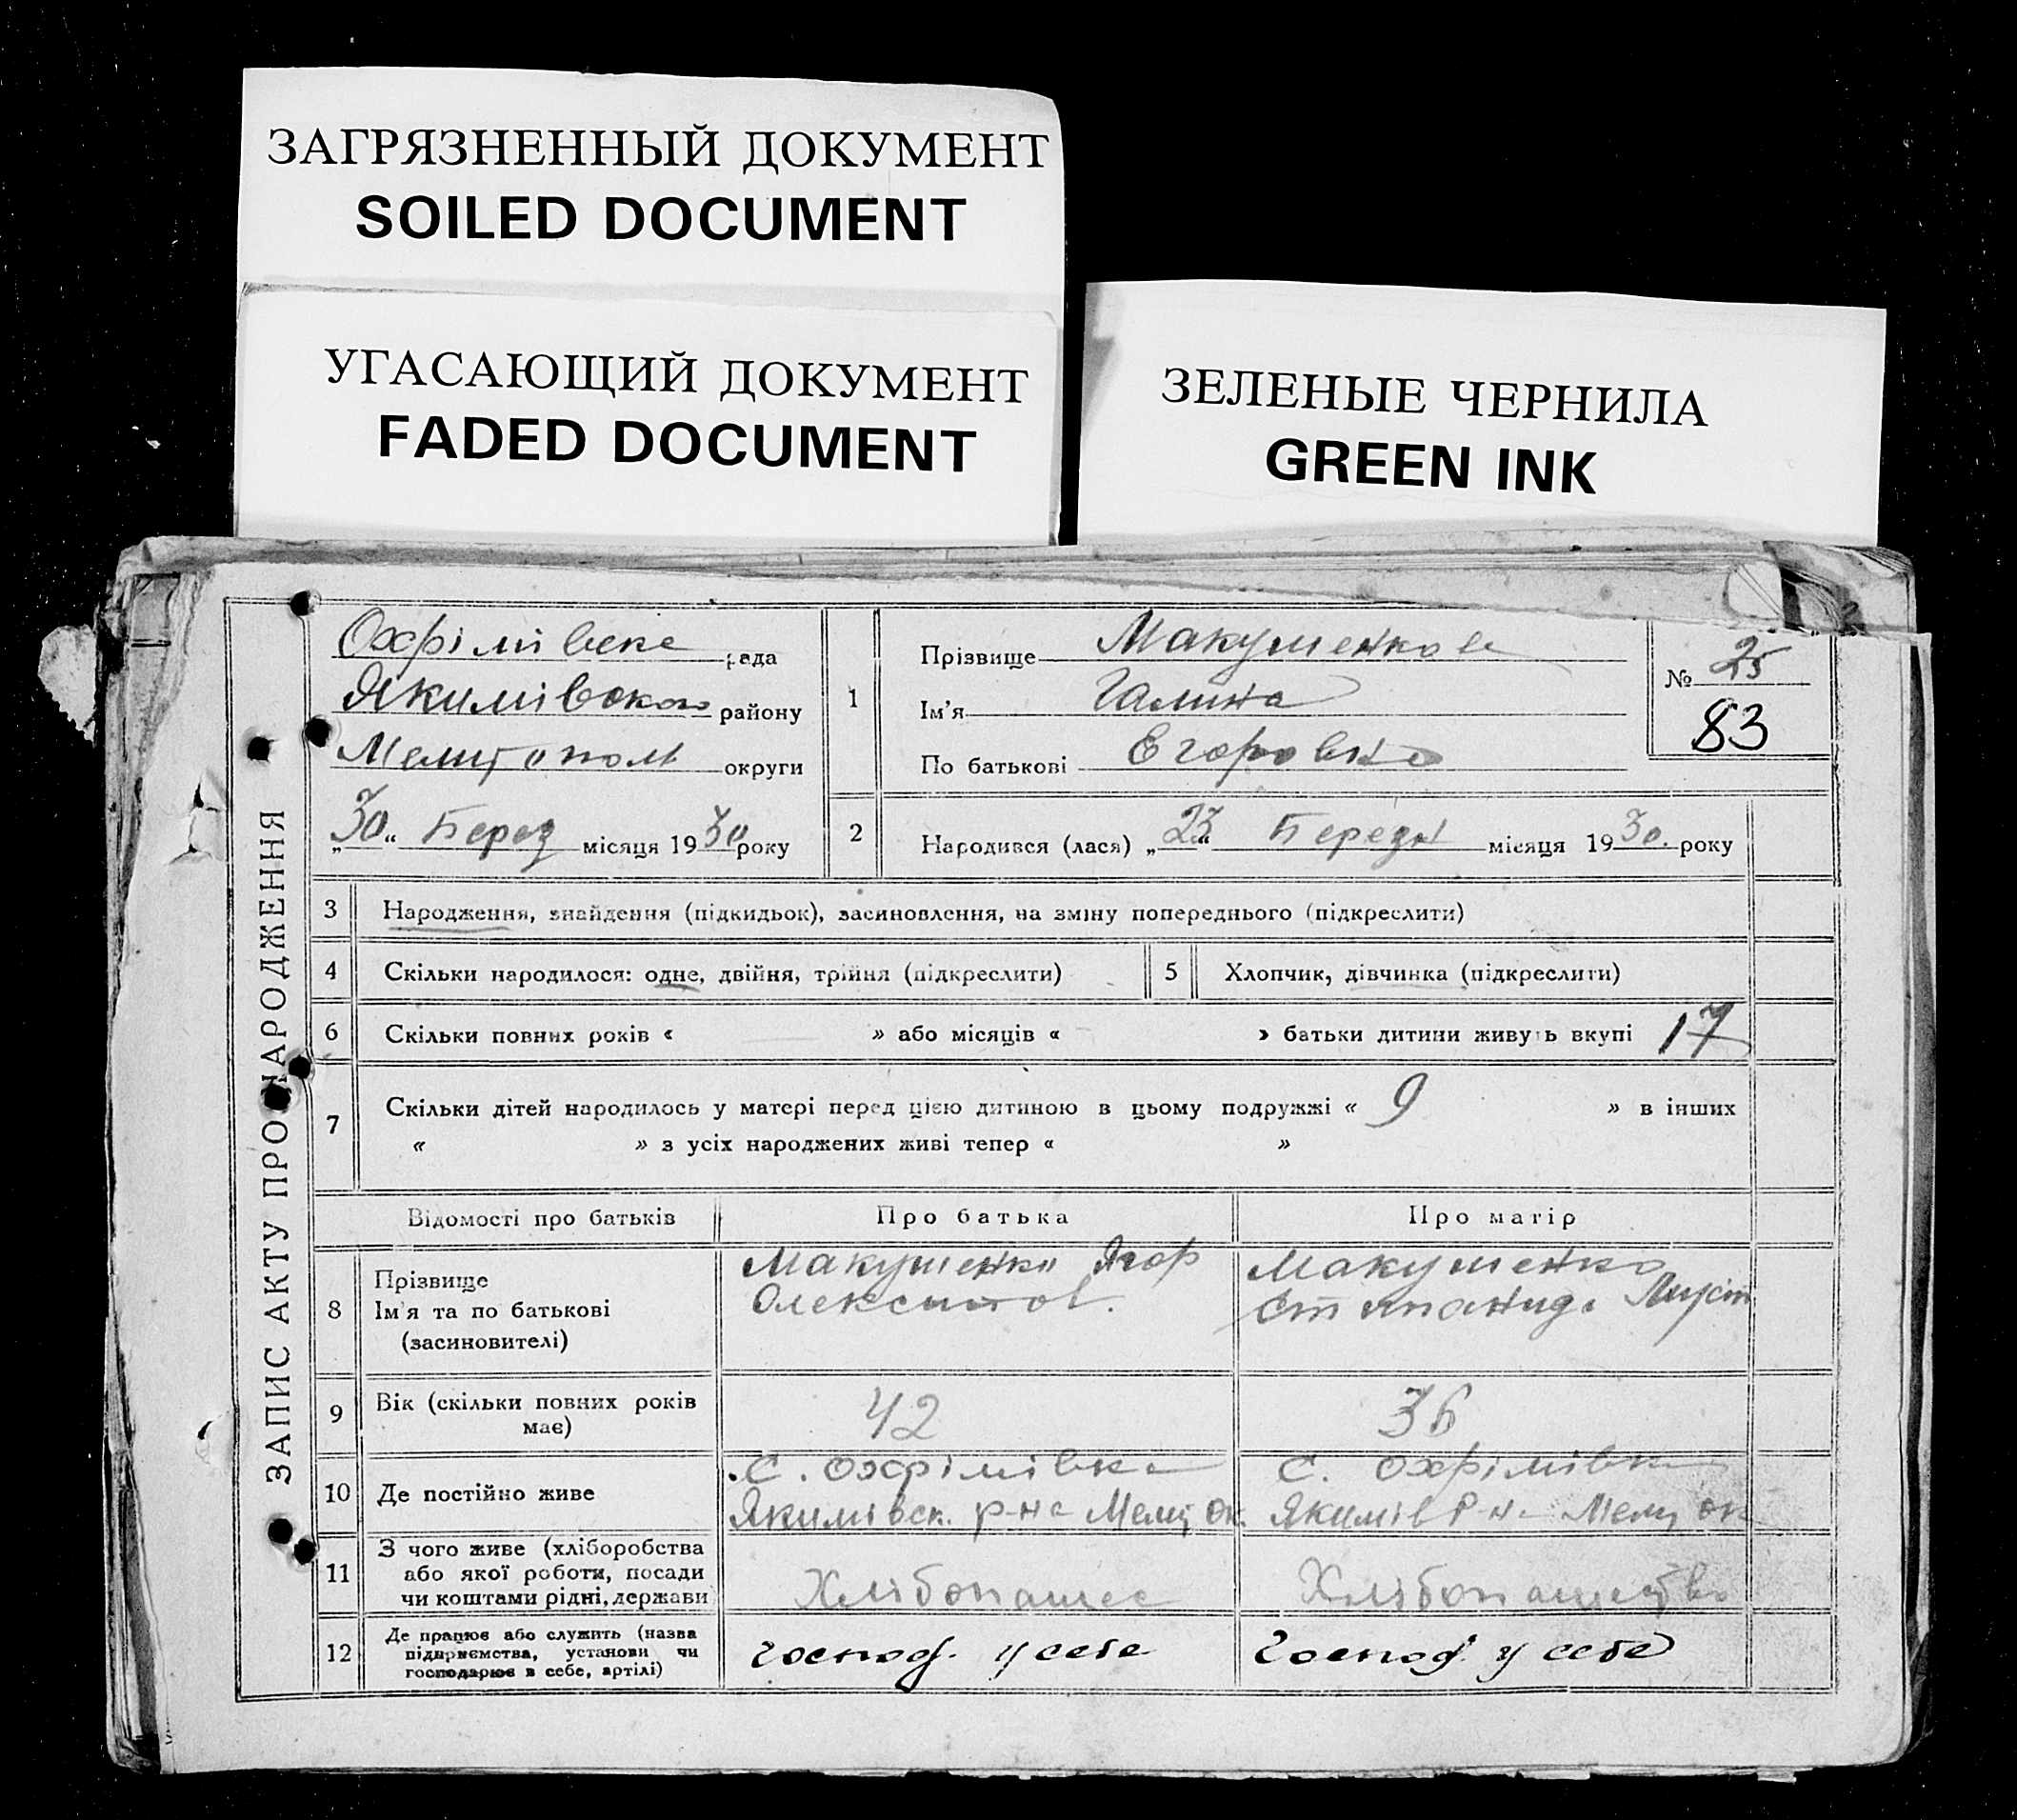 ЗАГРЯЗНЕННЫЙ ДОКУМЕНТ
SOILED DOCUMENT
УГАСАЮЩИЙ ДОКУМЕНТ
FADED DOCUMENT
ЗЕЛЕНЫЕ ЧЕРНИЛА
GREEN INK
ЗАПИС АКТУ ПРО НАРОДЖЕННЯ
Охрімівська рада
Якимівського району
Мелитополь округи
„30“ Берез місяця 1930 року
1
Прізвище Макушенкова
Ім'я Галина
По батькові Егоровна
№ 25
83
2 Народився (лася) „23“ Березн місяця 1930. року
3 Народження, знайдення (підкидьок), засиновлення, на зміну попереднього (підкреслити)
4 Скільки народилося: одне, двійня, трійня (підкреслити)
5 Хлопчик, дівчинка (підкреслити)
6 Скільки повних років « » або місяців « » батьки дитини живуть вкупі 17
7 Скільки дітей народилось у матері перед цією дитиною в цьому подружжі « 9 » в інших
« » з усіх народжених живі тепер « »
Відомості про батьків Про батька Про матір
8 Прізвище
Ім'я та по батькові
(засиновителі)
Макушенко Ягор
Макушенко
Степанида
9 Вік (скільки повних років
має)
42
36
10 Де постійно живе
с. Охрімівка
Якимівск. р-на Мелит Ок.
с. Охрімівка
Якимів Р-на Мелит ок
11 З чого живе (хліборобства
або якої роботи, посади
чи коштами рідні, держави
Хлібопашес
Хлібопашество
12 Де працює або служить (назва
підприємства, установи чи
господарює в себе, артілі)
господ. у себе
Господ. у себе